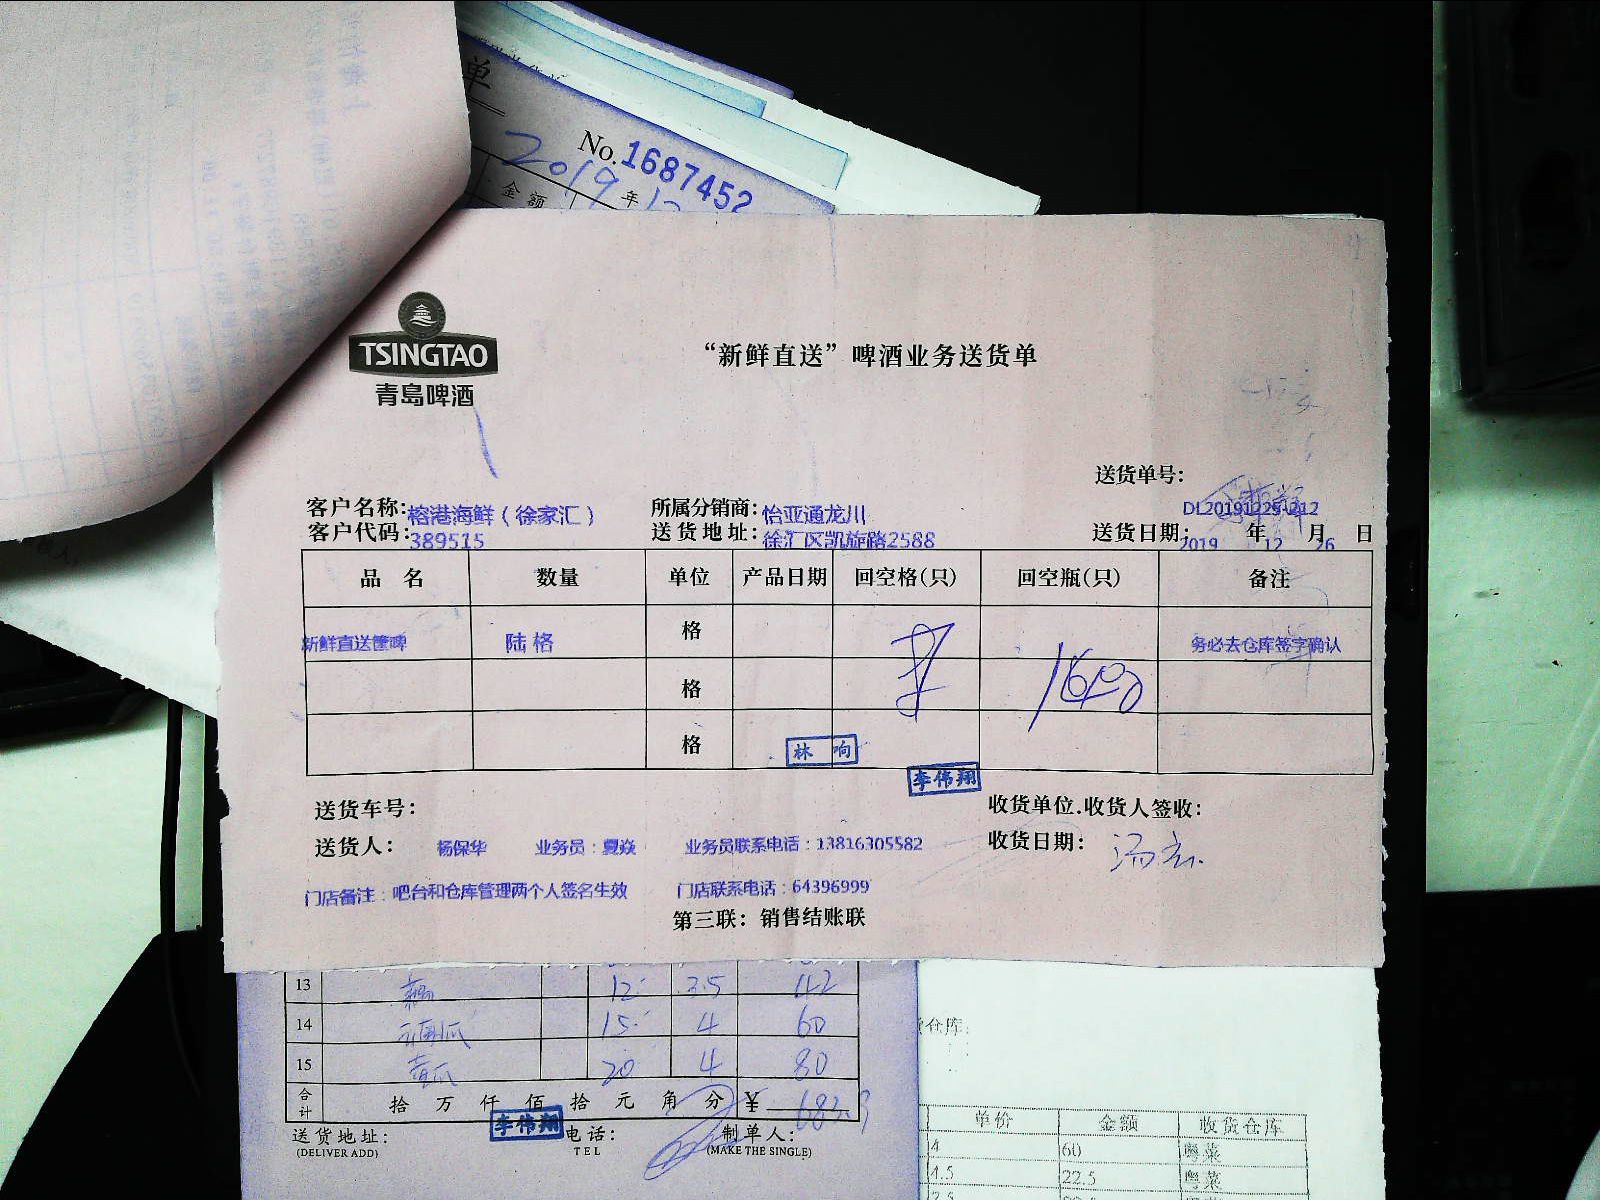 单
No.1687452
2019年12
金额
TSINGTAO
青岛啤酒
“新鲜直送”啤酒业务送货单
送货单号：
DL20191225-212
客户名称：榕港海鲜（徐家汇） 所属分销商：怡亚通龙川
客户代码：389515 送货地址：徐汇区凯旋路2588 送货日期：2019年12月26日
品名 数量 单位 产品日期 回空格(只) 回空瓶(只) 备注
新鲜直送箩啤 陆格 格 务必去仓库签字确认
格
格
林响
李伟翔
送货车号： 收货单位.收货人签收：
送货人：杨保华 业务员：夏焱 业务员联系电话：13816305582 收货日期：
门店备注：吧台和仓库管理两个人签名生效 门店联系电话：64396999
第三联：销售结账联
13 12 3.5 42
14 15 4 60
15 黄瓜 20 4 80
合计 拾万仟佰拾元角分 ¥
李伟翔
送货地址： 电话： 制单人：
(DELIVER ADD) TEL (MAKE THE SINGLE)
仓库：
单价 金额 收货仓库
4 60 粤菜
4.5 22.5 粤菜